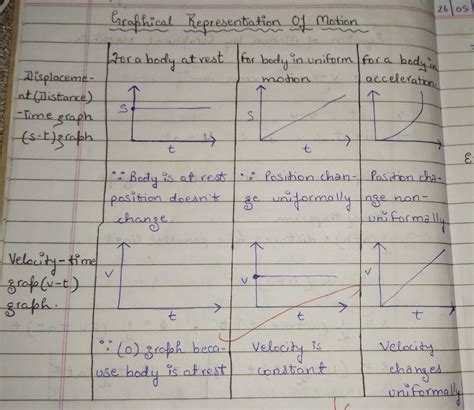 Graphical Representation Of Motion
26 05
For a body at rest
for body in uniform motion
for a body in acceleration
Displaceme-
nt(Distance)
-Time graph
(s-t) graph
S
t
S
t
t
∵ Body is at rest
position doesn't
change.
∵ Position chan-
ge uniformally
Position cha-
nge non-
uniformally
Velocity-time
grap(v-t)
graph.
V
t
V
t
V
t
∵ (0) graph beca-
use body is at rest
Velocity is
constant
Velocity
changes
uniformally